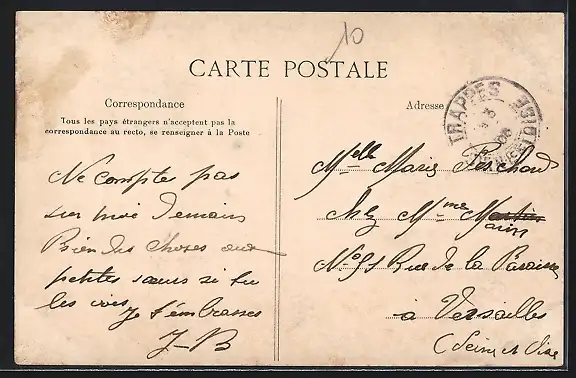 10
CARTE POSTALE
Correspondance
Tous les pays étrangers n'acceptent pas la
correspondance au recto, se renseigner à la Poste
Adresse
TRAPPES
Ne comptes pas
sur moi demain
Bien des choses aux
petites sœurs si tu
les vois, Je t'embrasse
J-B
Melle Marie
Chez Mme
No 91 Rue de la Paroisse
à Versailles
(Seine et Oise